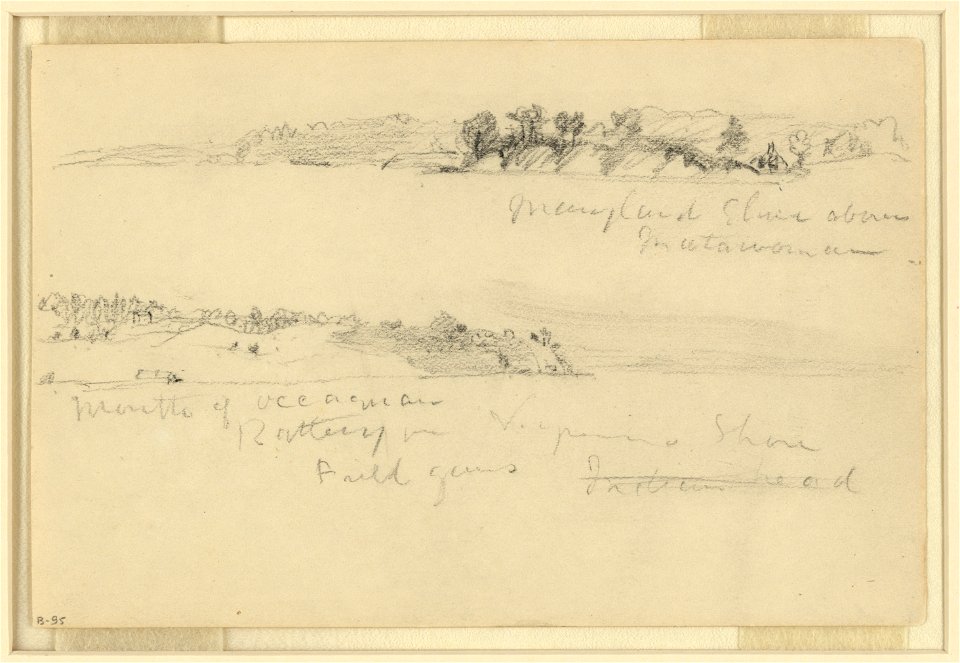 Maryland Shore above
Matawoman
Mouth of Occaquan
Battery for Virginia Shore
Field guns Indian head
B-95